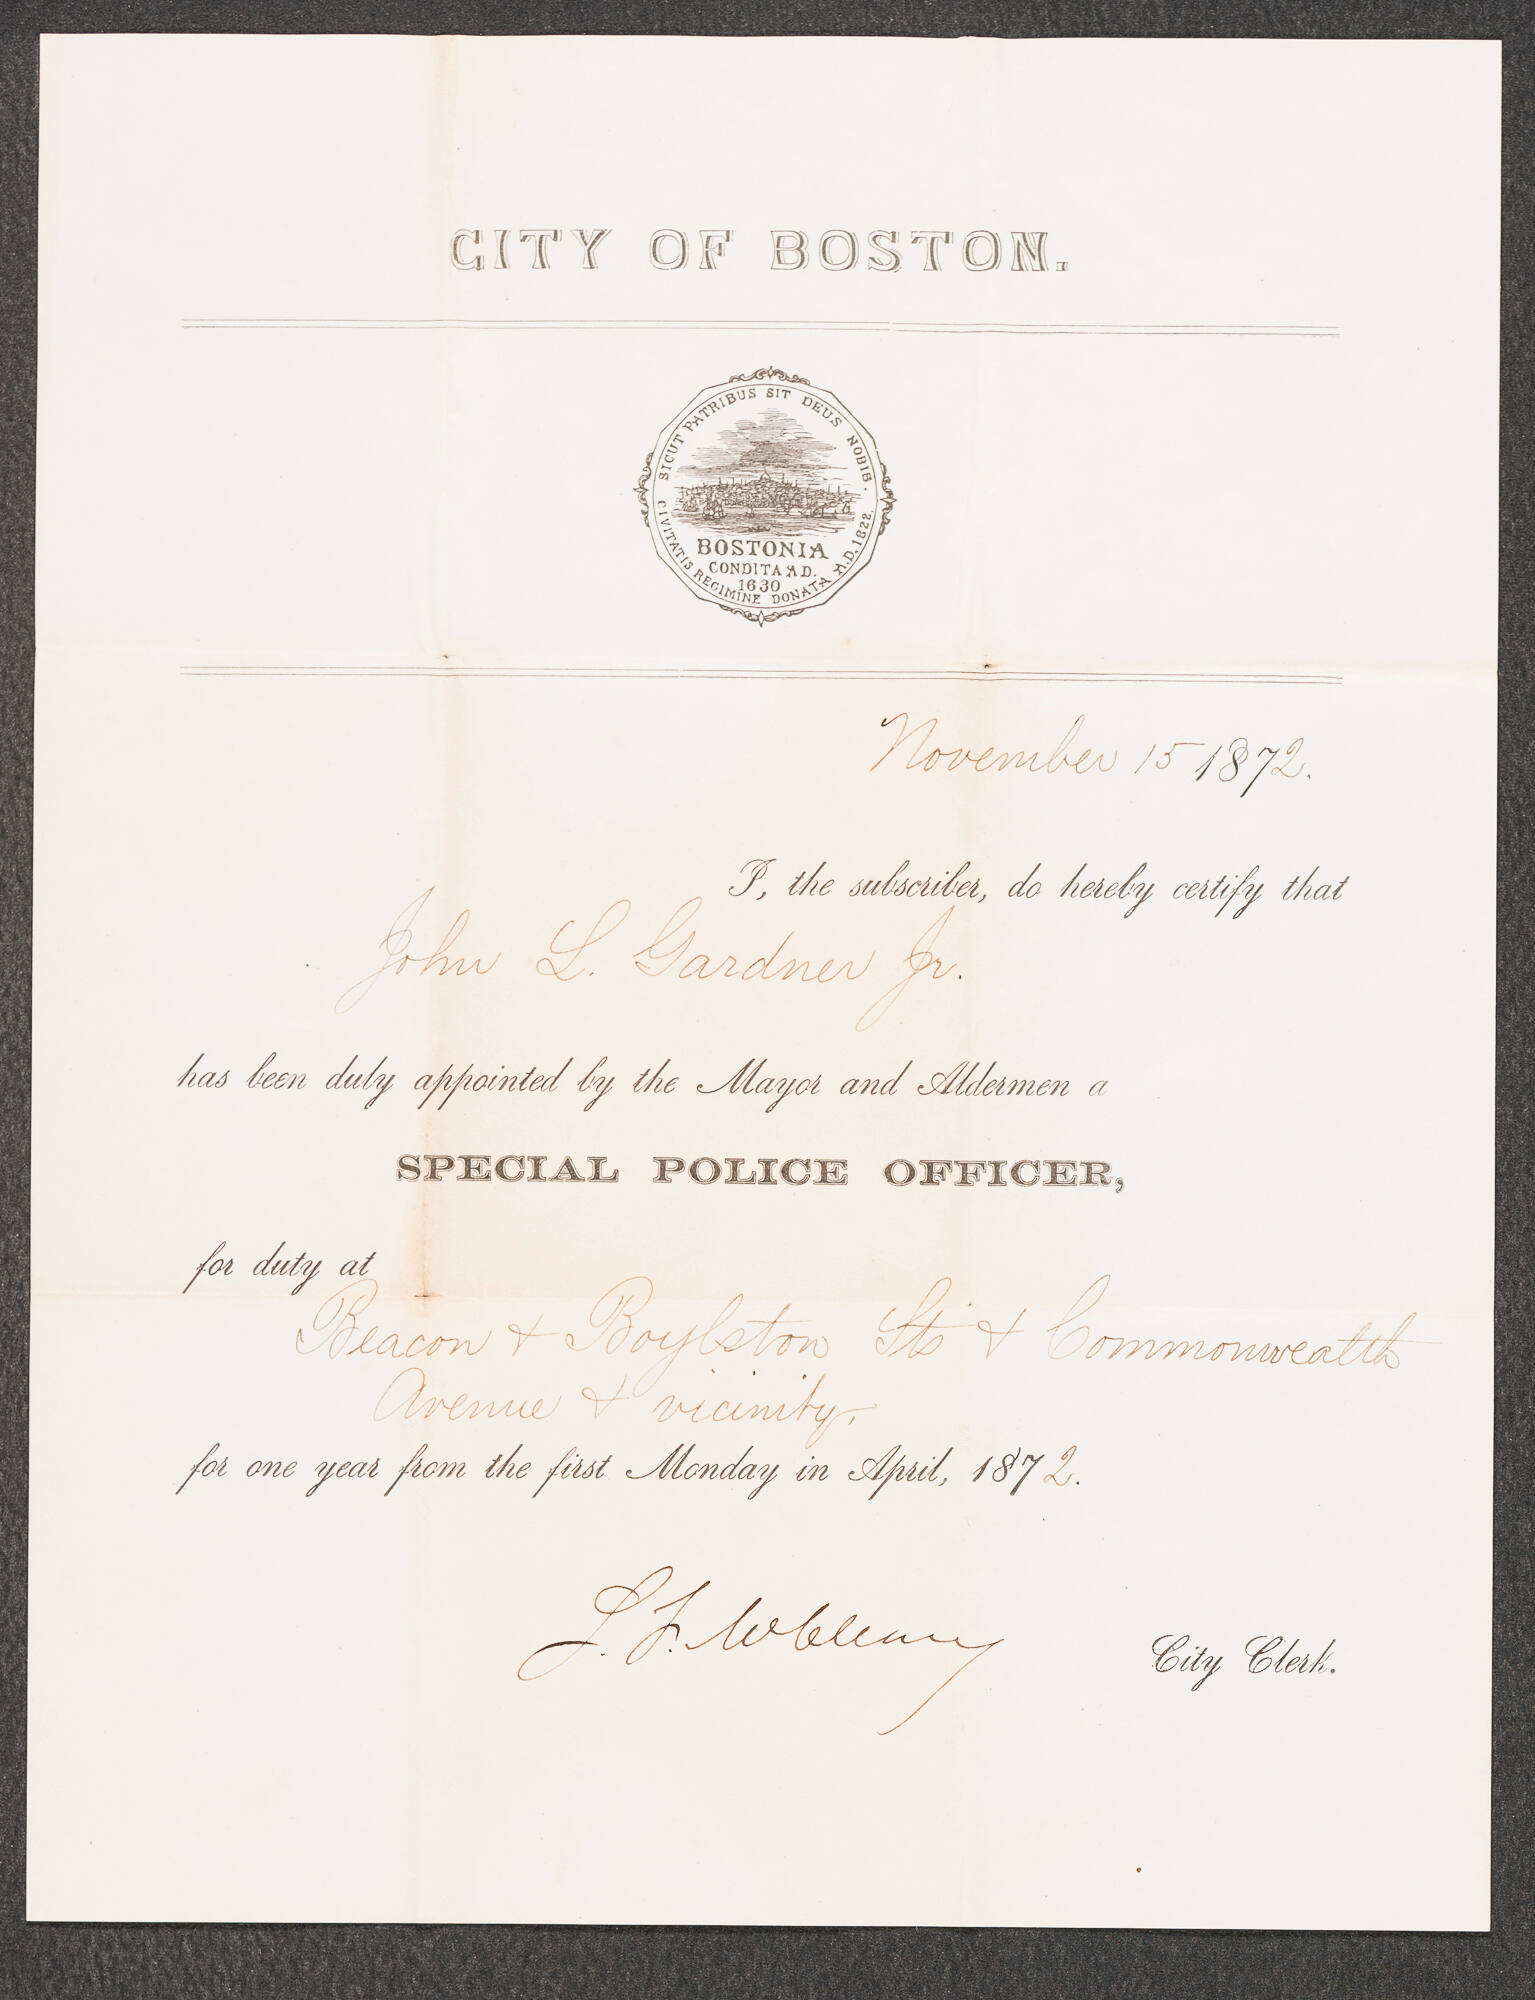 CITY OF BOSTON.
SICUT PATRIBUS SIT DEUS NOBIS.
BOSTONIA
CONDITA A.D.
1630
CIVITATIS REGIMINE DONATA A.D. 1822.
November 15 1872.
I, the subscriber, do hereby certify that
John L. Gardner Jr.
has been duly appointed by the Mayor and Aldermen a
SPECIAL POLICE OFFICER,
for duty at
Beacon & Boylston Sts & Commonwealth
Avenue & vicinity,
for one year from the first Monday in April, 1872.
S. F. McCleary
City Clerk.